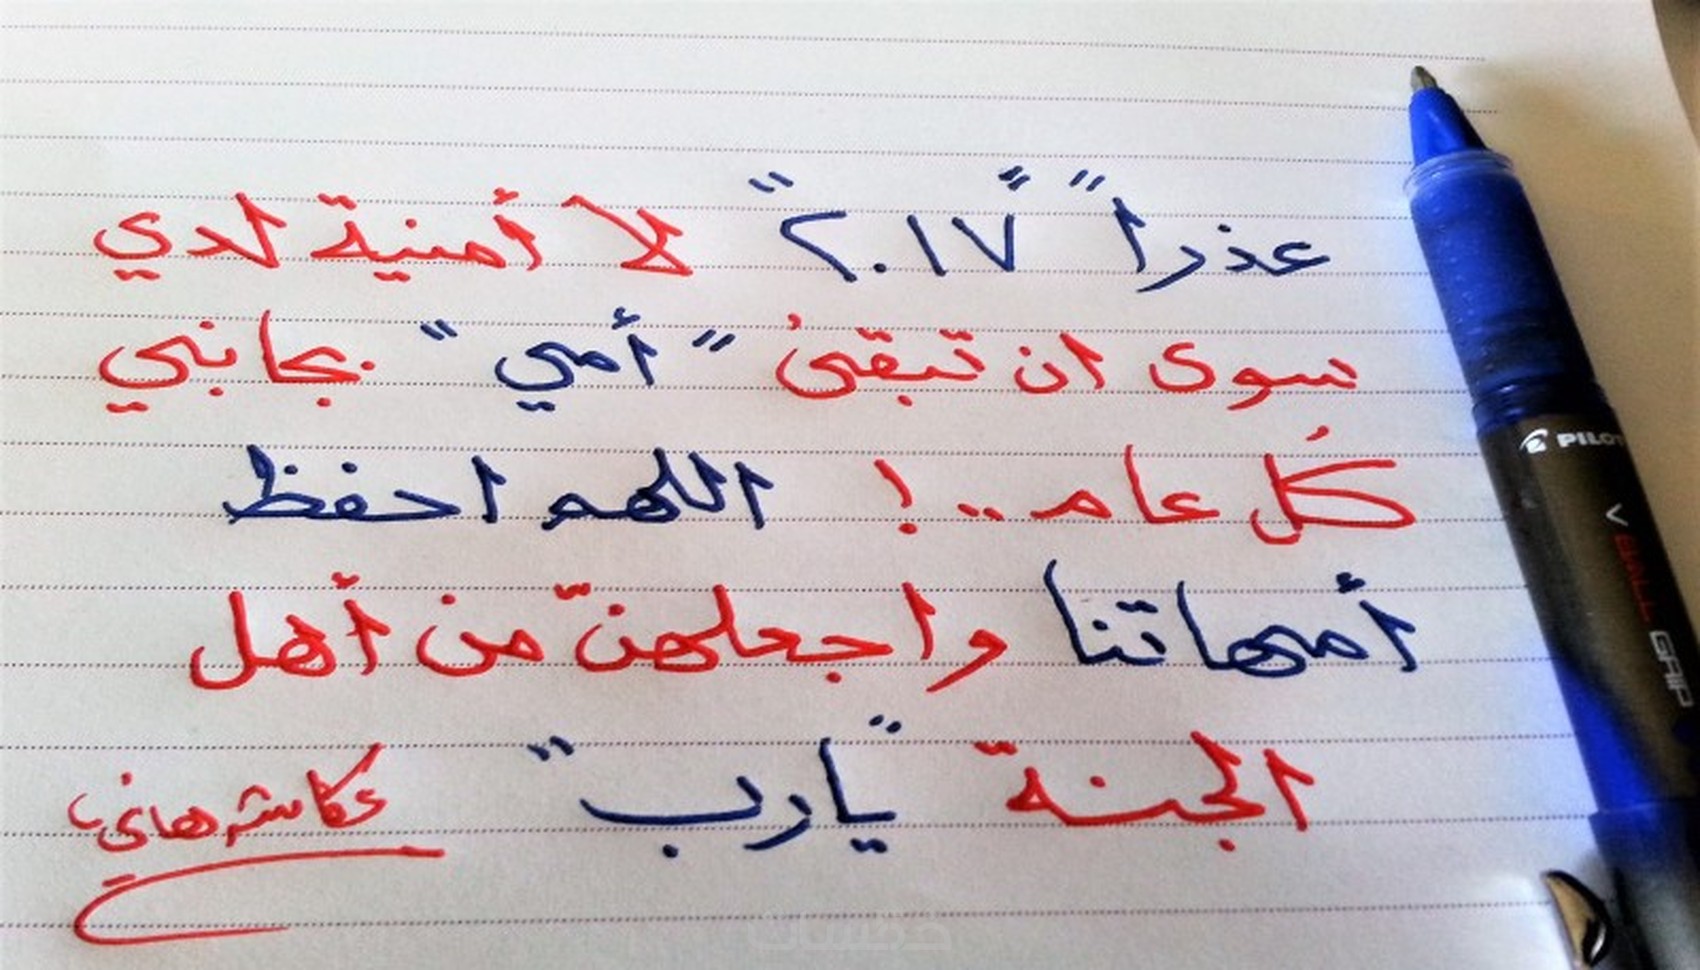 عذراً "٢٠١٧" لا أمنية لدي
سوى ان تبقىٰ "أمي" بجانبي
كُل عام ..! اللهم احفظ
أمهاتنا واجعلهنّ من أهل
الجنة "يارب"
عكاشه هاني
PILOT
V BALL GRIP
خمسات